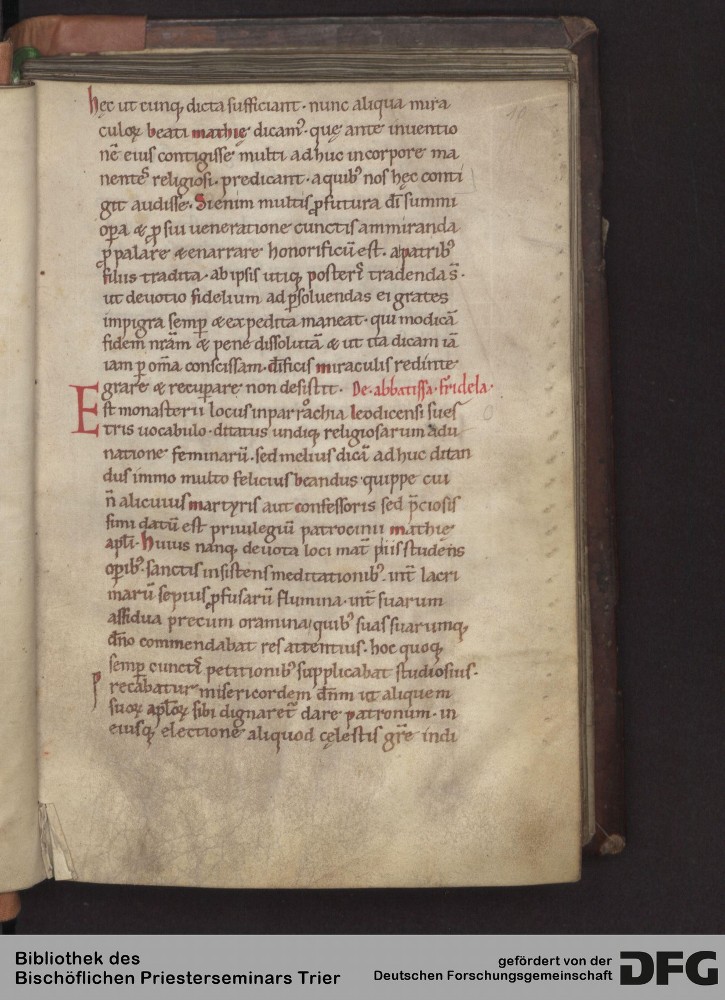 hęc ut cunq; dicta sufficiant · nunc aliqua mira
culoꝝ beati mathię dicamꝰ · quę ante inuentio
nē eius contigisse multi adhuc in corpore ma
nentes religiosi · predicant · a quibꝰ nos hęc conti
git audisse · Si enim multis ꝓfutura dī summi
oꝑa & ꝓ sui ueneratione cunctis ammiranda
ꝓpalare & enarrare honorificū est · a patribꝰ
filiis tradita · ab ipsis utiq; posteris tradenda s̄ ·
ut deuotio fidelium ad ꝑsoluendas ei grates
impigra semꝑ & expedita maneat · qui modicā
fidem nr̄am & pene dissolutā & ut ita dicam iā
iam ꝑ om̄a conscissam · d̄ificis miraculis redinte
grare & recuꝑare non desistit · De · abbatissa · fridela ·
Est monasterii locus in parrochia leodicensi sues
tris uocabulo · ditatus undiq; religiosarum adu
natione feminarū · sed melius dicā adhuc ditan
dus immo multo felicius beandus · quippe cui
n̄ alicuius martyris aut confessoris sed p̄ciosis
simi datū est priuilegiū patrocinii mathie
apl̄i · Huius nanq; deuota loci mat̄ piis studens
oꝑibꝰ · sanctis insistens meditationibꝰ · int̄ lacri
marū sepius ꝓfusarū flumina · int̄ suarum
assidua precum oramina / quibꝰ suas suarumq;
dn̄o commendabat res attentius · hoc quoq;
semꝑ cunctis petitionibꝰ supplicabat studiosius ·
Precabatur misericordem dn̄m ut aliquem
suoꝝ apl̄oꝝ sibi dignaret̄ dare patronum · in
eiusq; electione aliquod cęlestis gr̄e indi
Bibliothek des
Bischöflichen Priesterseminars Trier
gefördert von der
Deutschen Forschungsgemeinschaft
DFG